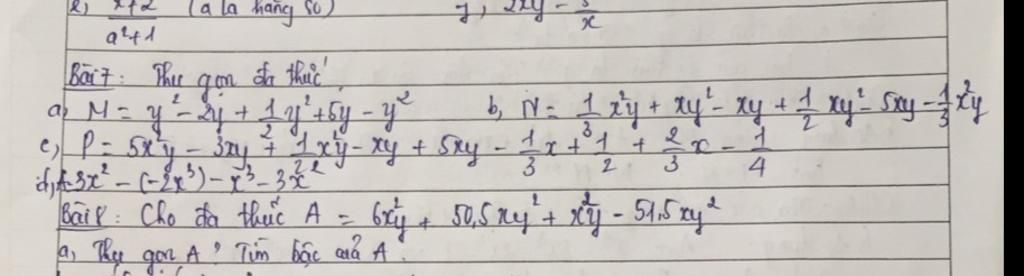 x+2 / a²+1 (a là hằng số)
2xy - 3/x
Bài 7: Thu gọn đa thức
a, M = y² - 2y + 1/2 y² + 5y - y² b, N = 1/3 x²y + xy² - xy + 1/2 xy² - 5xy - 1/3 x²y
c, P = 5x²y - 3xy + 1/2 x²y - xy + 5xy - 1/3 x + 1/2 + 2/3 x - 1/4
d, -3x² - (-2x³) - x³ - 3x²
Bài 8: Cho đa thức A = 6x²y + 50,5xy² + x²y - 51,5xy²
a, Thu gọn A? Tìm bậc của A.